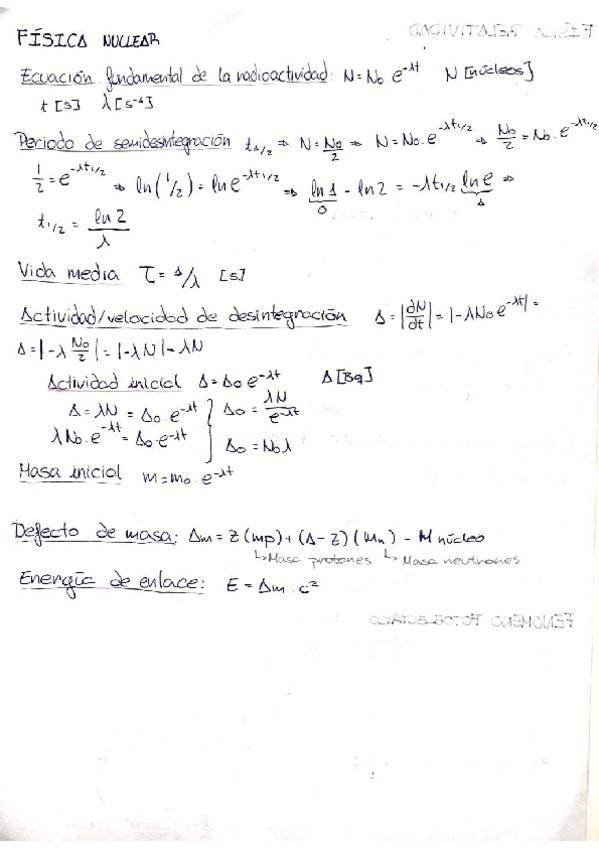 FÍSICA NUCLEAR
Ecuación fundamental de la radioactividad: N = N₀ e^-λt    N [núcleos]
t [s]    λ [s⁻¹]
Periodo de semidesintegración t₁/₂ ⇒ N = N₀/2 ⇒ N = N₀·e^-λt₁/₂ ⇒ N₀/2 = N₀·e^-λt₁/₂
1/2 = e^-λt₁/₂ ⇒ ln(1/2) = ln e^-λt₁/₂ ⇒ ln 1 - ln 2 = -λt₁/₂ ln e ⇒
0    1
t₁/₂ = ln 2/λ
Vida media τ = 1/λ [s]
Actividad/velocidad de desintegración A = |dN/dt| = |-λN₀ e^-λt| =
A = |-λ N₀/2| = |-λN| = λN
Actividad inicial A = A₀ e^-λt    A [Bq]
A = λN = A₀·e^-λt } A₀ = λN/e^-λt
λN₀·e^-λt = A₀·e^-λt } A₀ = N₀λ
Masa inicial m = m₀·e^-λt
Defecto de masa: Δm = Z(mp) + (A-Z)(mn) - M núcleo
↳ Masa protones ↳ Masa neutrones
Energía de enlace: E = Δm·c²